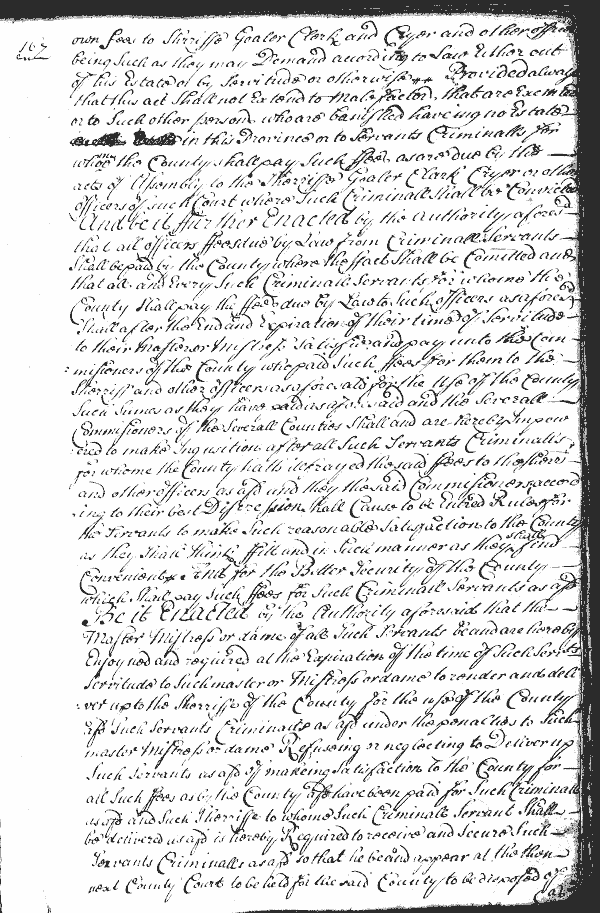 167
own fees to Sherriffe Goaler Clerk and Cryer and other officers
being Such as they may Demand according to Law Either out
of his Estate or by Servitude or otherwise Provided alway
that this act Shall not Extend to Malefactors that are Executed
or to Such other persons who are banished haveing no Estate
in this Province or to Servants Criminalls for
whome the County shall pay Such ffees as are due by the
acts of Assembly to the Sherriffe Goaler Clark Cryer or other
officers of such Court where Such Criminall Shall be Convicted
And be it ffurther Enacted by the authority aforesd
that all officers ffees due by Law from Criminall Servants
Shall be paid by the County where the ffact Shall be Comitted and
that all and Every Such Criminall Servants for whome the
County Shall pay the ffees due by Law to Such officers as aforesd
Shall after the End and Expiration of their time of Servitude
to their Master or Mistress Satisfie and pay unto the Com
missioners of the County who paid Such ffees for them to the
Sherriff and other officers as aforesaid for the Use of the County
Such Sumes as they have paid as aforesaid and the Severall
Commissioners of the Severall Counties Shall and are hereby Impow
ered to make Inquisition after all Such Servants Criminalls
for whome the County hath defrayed the said ffees to the Sherriffe
and other officers as afsd and they the said Commissioners accord
ing to their best Discression shall Cause to be Entred Rules for
the Servants to make Such reasonable Satisfaction to the County
as they Shall think ffitt and in Such manner as they shall find
Convenient And for the Better Security of the County
which Shall pay Such ffees for Such Criminall Servants as afsd
Be it Enacted by the Authority aforesaid that the
Master Mistress or dame of all Such Servants be and are hereby
Enjoyned and required at the Expiration of the time of Such Servts
Servitude to Such master or Mistress or dame to render and deli
ver up to the Sherriffe of the County for the use of the County
afsd Such Servants Criminalls as afsd under the penalties to Such
master Mistress or dame Refuseing or neglecting to Deliver up
Such Servants as afsd of makeing Satisfaction to the County for
all Such ffees as by the County afsd have been paid for Such Criminalls
as afsd and Such Sherriffe to whome Such Criminall Servant Shall
be delivered as afsd is hereby Required to receive and Secure Such
Servants Criminalls as afsd so that he be and appear at the then
next County Court to be held for the said County to be disposed of